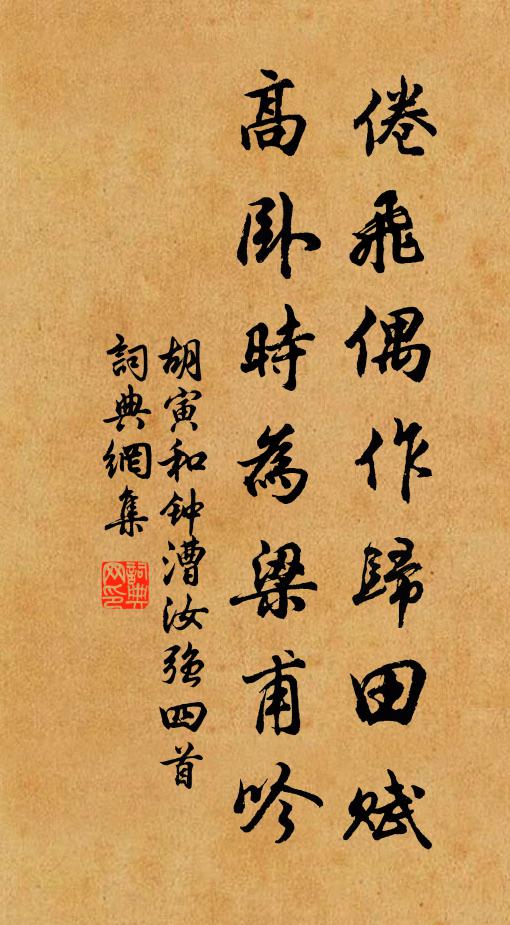 倦飛偶作歸田賦
高卧時為梁甫吟
胡寅和钟漕汝強四首
詞典網集
詞典網印